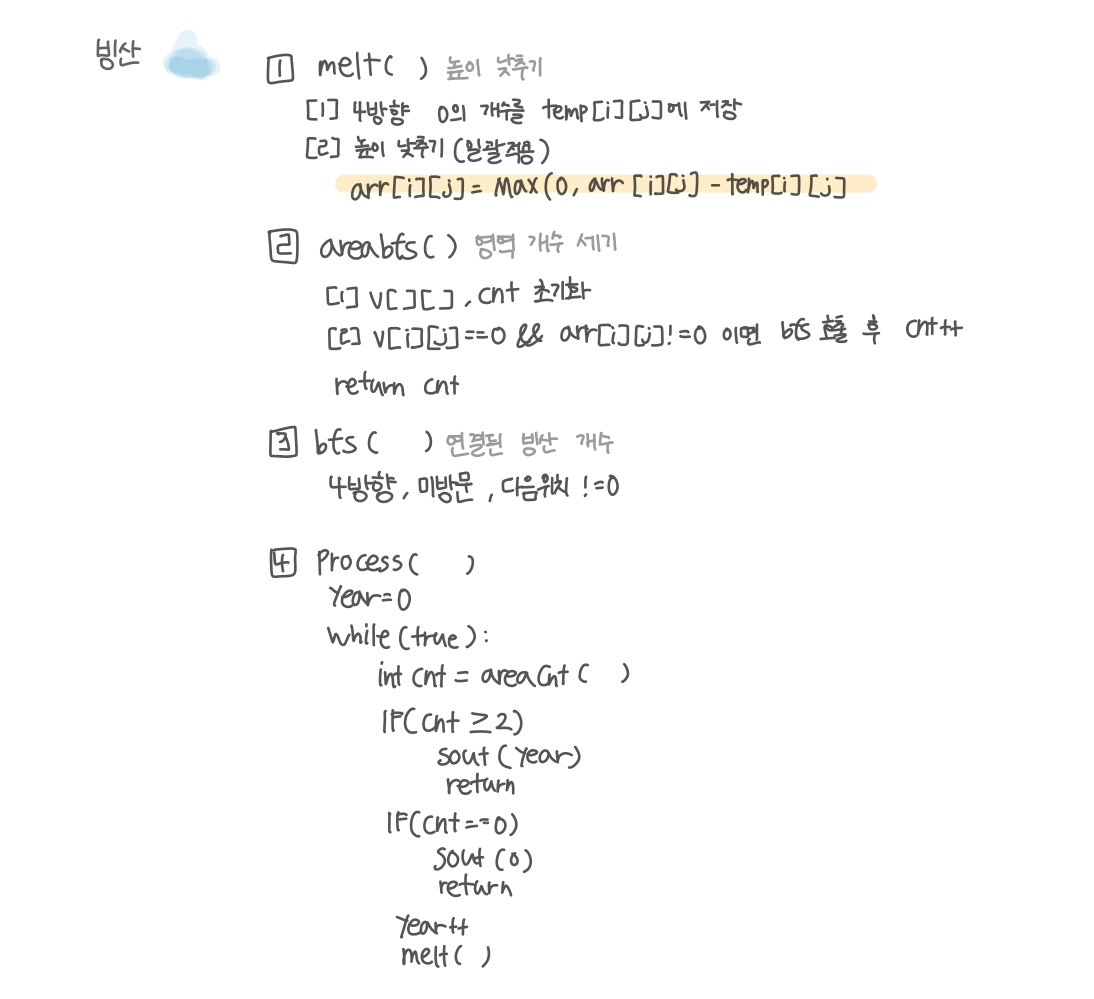 빙산
1 melt( ) 높이 낮추기
[1] 4방향 0의 개수를 temp[i][j]에 저장
[2] 높이 낮추기 (일괄적용)
arr[i][j] = Max(0, arr[i][j] - temp[i][j]
2 areabfs( ) 영역 개수 세기
[1] v[ ][ ], cnt 초기화
[2] v[i][j]==0 && arr[i][j]!=0 이면 bfs 호출 후 cnt++
return cnt
3 bfs( ) 연결된 빙산 개수
4방향, 미방문, 다음위치 !=0
4 Process( )
Year=0
While(true):
int cnt = areaCnt( )
IF(cnt ≥2)
sout(Year)
return
IF(cnt==0)
sout(0)
return
Year++
melt( )